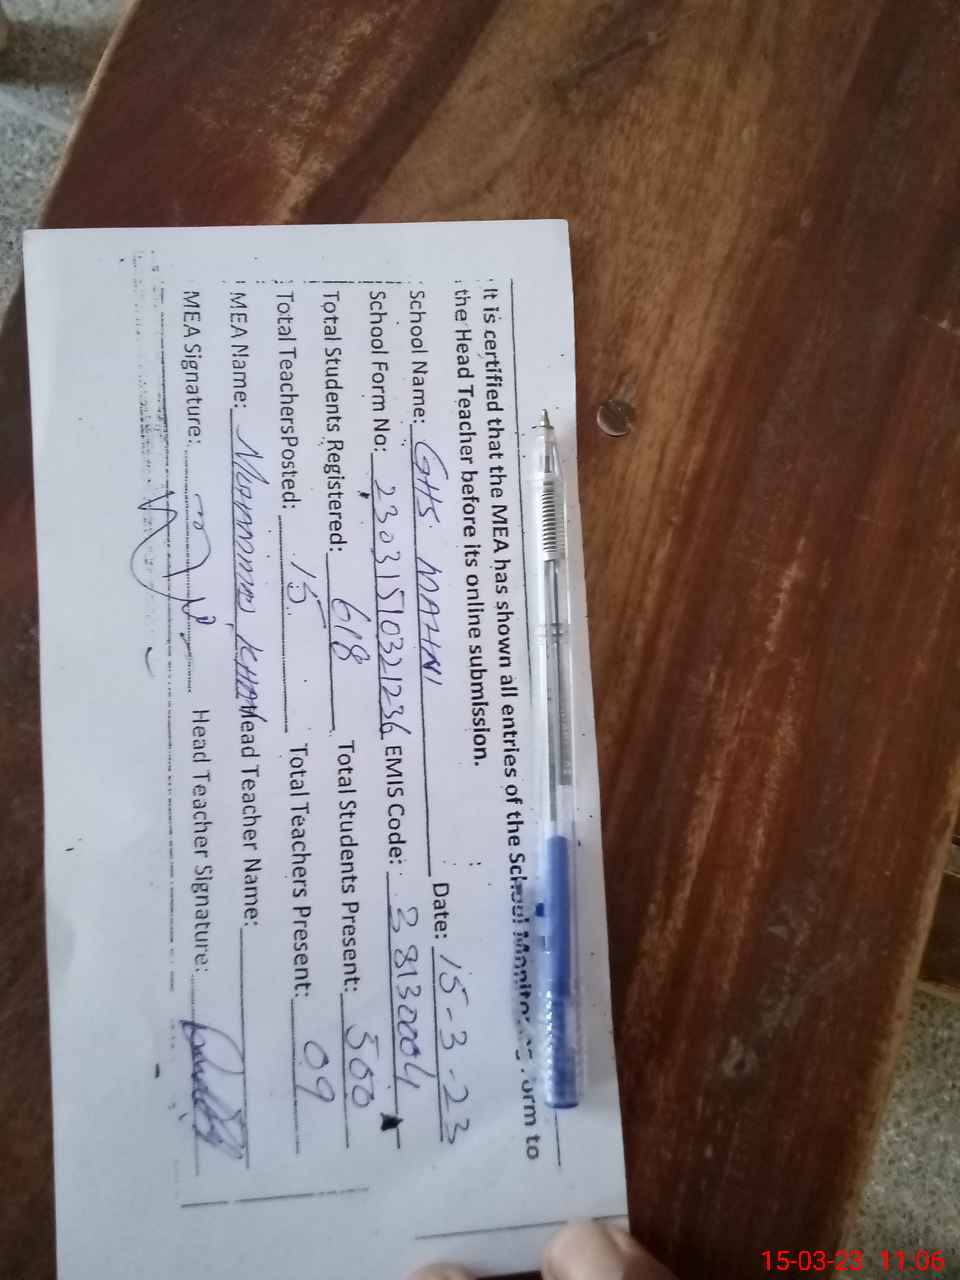 It is certified that the MEA has shown all entries of the School Monitoring Form to
the Head Teacher before its online submission.
School Name: GHS Date: 15-3-23
School Form No: 23031510321236 EMIS Code: 38130004
Total Students Registered: 618 Total Students Present: 500
Total TeachersPosted: 15 Total Teachers Present: 09
MEA Name: KHAN Head Teacher Name:
MEA Signature: Head Teacher Signature:
15-03-23 11:06